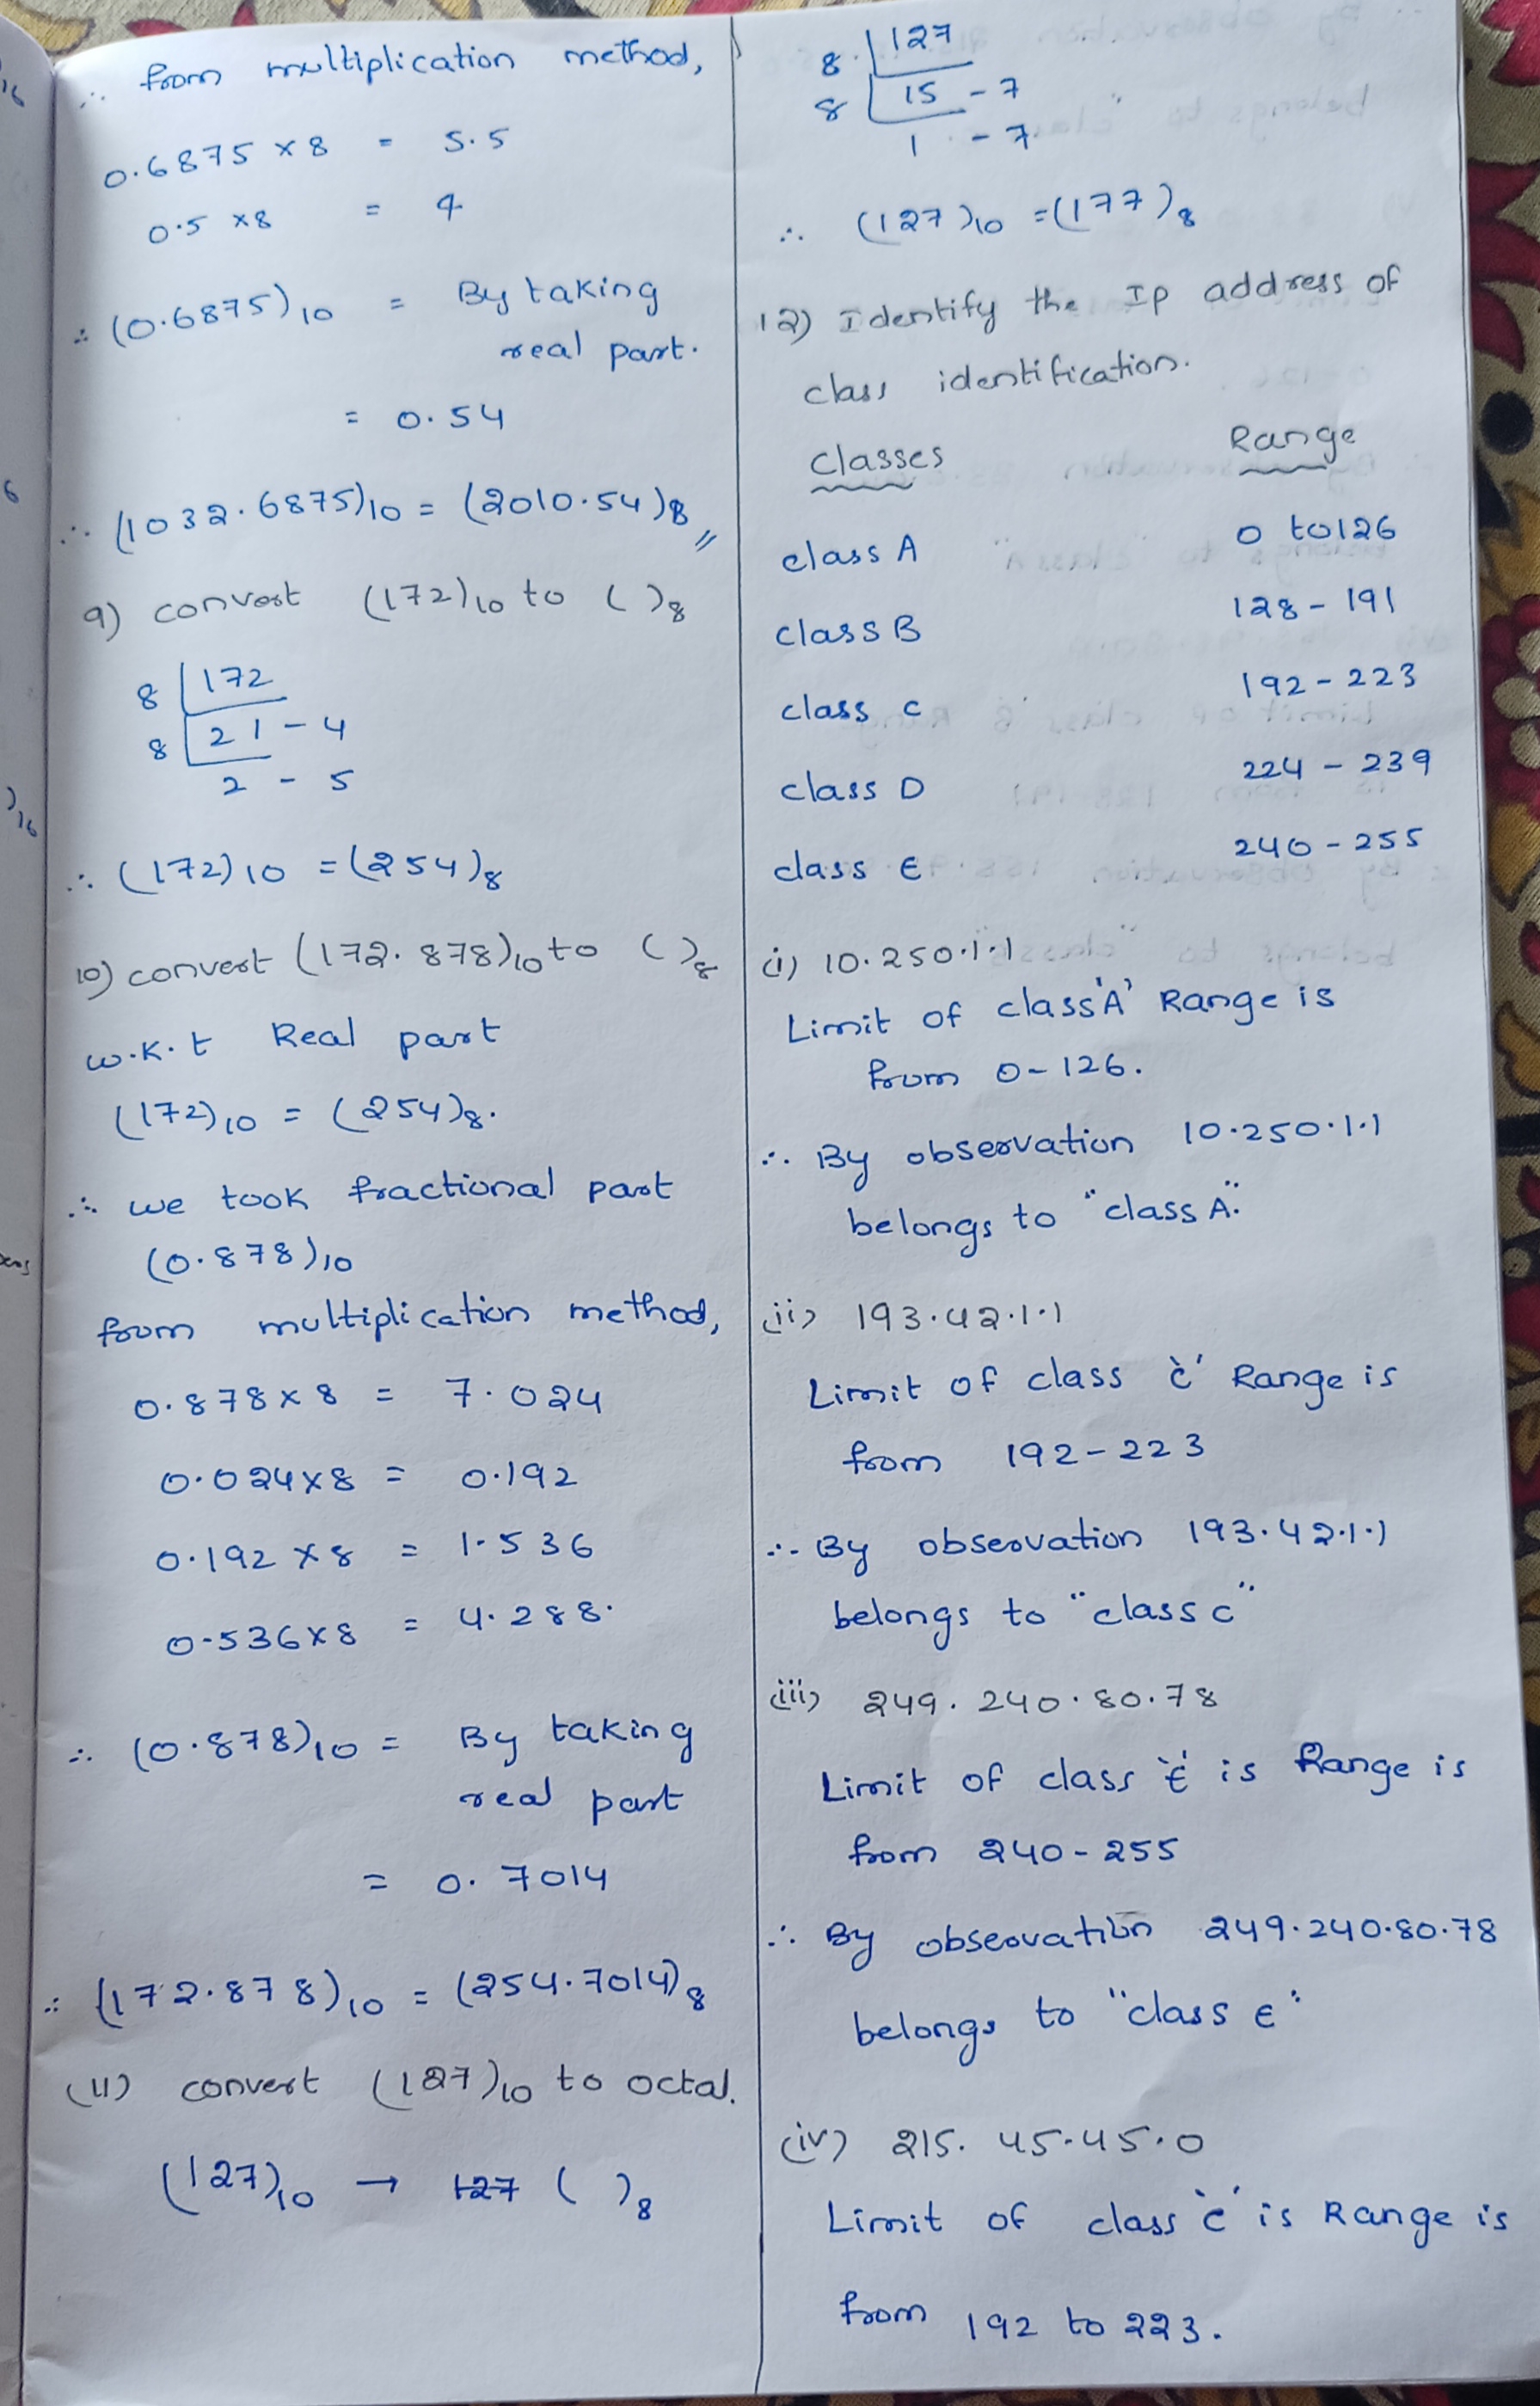 ∴ from multiplication method,
0.6875 × 8 = 5.5
0.5 × 8 = 4
∴ (0.6875)10 = By taking
real part.
= 0.54
∴ (1032.6875)10 = (2010.54)8 //
9) convert (172)10 to ( )8
8 | 172
8 | 21 - 4
2 - 5
∴ (172)10 = (254)8
10) convert (172.878)10 to ( )8
w.k.t Real part
(172)10 = (254)8.
∴ we took fractional part
(0.878)10
from multiplication method,
0.878 × 8 = 7.024
0.024 × 8 = 0.192
0.192 × 8 = 1.536
0.536 × 8 = 4.288.
∴ (0.878)10 = By taking
real part
= 0.7014
∴ (172.878)10 = (254.7014)8
(11) convert (127)10 to octal.
(127)10 → 127 ( )8
8 | 127
8 | 15 - 7
1 - 7
∴ (127)10 = (177)8
12) Identify the Ip address of
class identification.
Classes Range
class A 0 to 126
class B 128 - 191
class c 192 - 223
class D 224 - 239
class E 240 - 255
(i) 10.250.1.1
Limit of class 'A' Range is
from 0 - 126.
∴ By observation 10.250.1.1
belongs to "class A".
(ii) 193.42.1.1
Limit of class 'c' Range is
from 192 - 223
∴ By observation 193.42.1.1
belongs to "class c"
(iii) 249.240.80.78
Limit of class 'E' is Range is
from 240 - 255
∴ By observation 249.240.80.78
belongs to "class E"
(iv) 215.45.45.0
Limit of class 'c' is Range is
from 192 to 223.